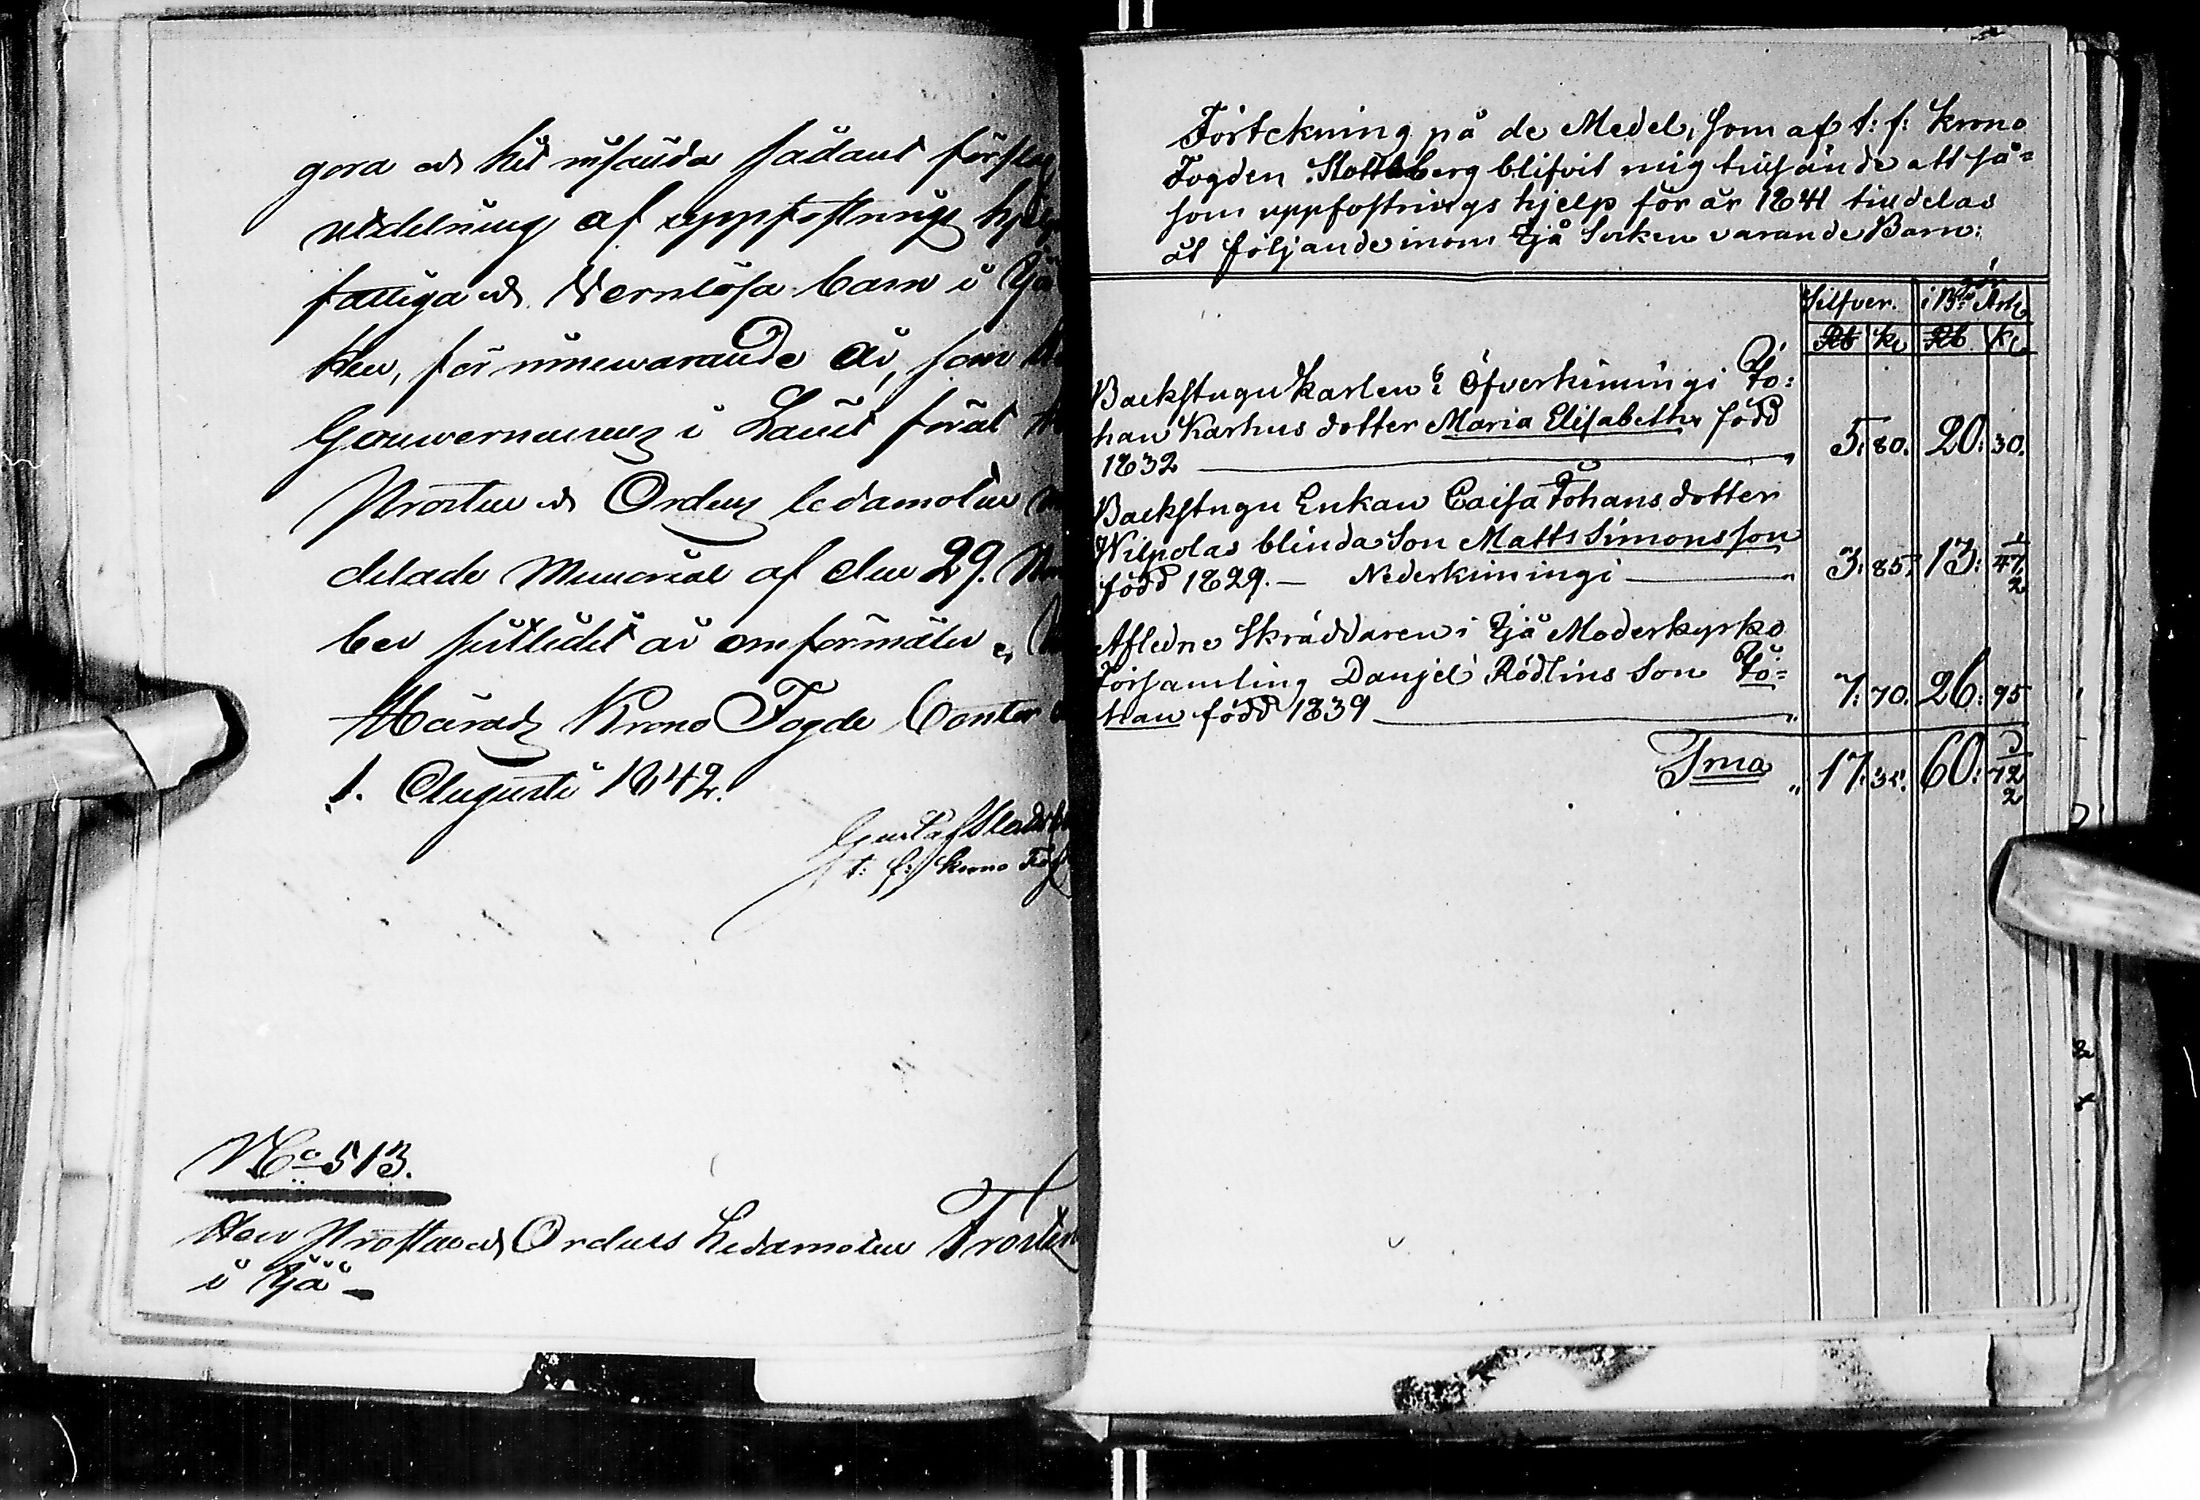 göra och hit insända sådant förslag
utdelning af uppfostrings hjelp
fattiga och Vernlösa barn i Ijå
ken, för innewarande år, som
Gouverneuren i Länet förat
Prosten och Ordens ledamoten
delade Memorial af den 29.
ber sistledit år omförmäler.
Härads Krono Fogde Contor
1. Augusti 1842.
Gustaf
t: f: Krono Fogde
No 513.
Herr Prosten och Ordens Ledamoten Frosterus
i Ijå
Förtekning på de Medel, som af t: f: Krono
Fogden Slottsberg blifvit mig tillsände att så=
som uppfostrings hjelp för år 1841 tilldelas
åt följande inom Ijå Socken varande Barn:
Silfver. | i Bco Ass
Rb | K | Rb | K
Backstugu Karlen i Öfverkiimingi Jo=
han Karhus dotter Maria Elisabeth född
1832 " 5: 80. 20: 30.
Backstugu Enkan Caisa Johans dotter
Wilpolas blinda Son Matts Simonsson
född 1829. — Nederkiimingi " 3: 85. 13: 47 1/2
Afledne Skräddaren i Ijå Moderkyrko
Församling Danjel Rödlins Son Jo=
han född 1839 " 7: 70. 26: 95
Sma " 17: 35. 60: 72 1/2